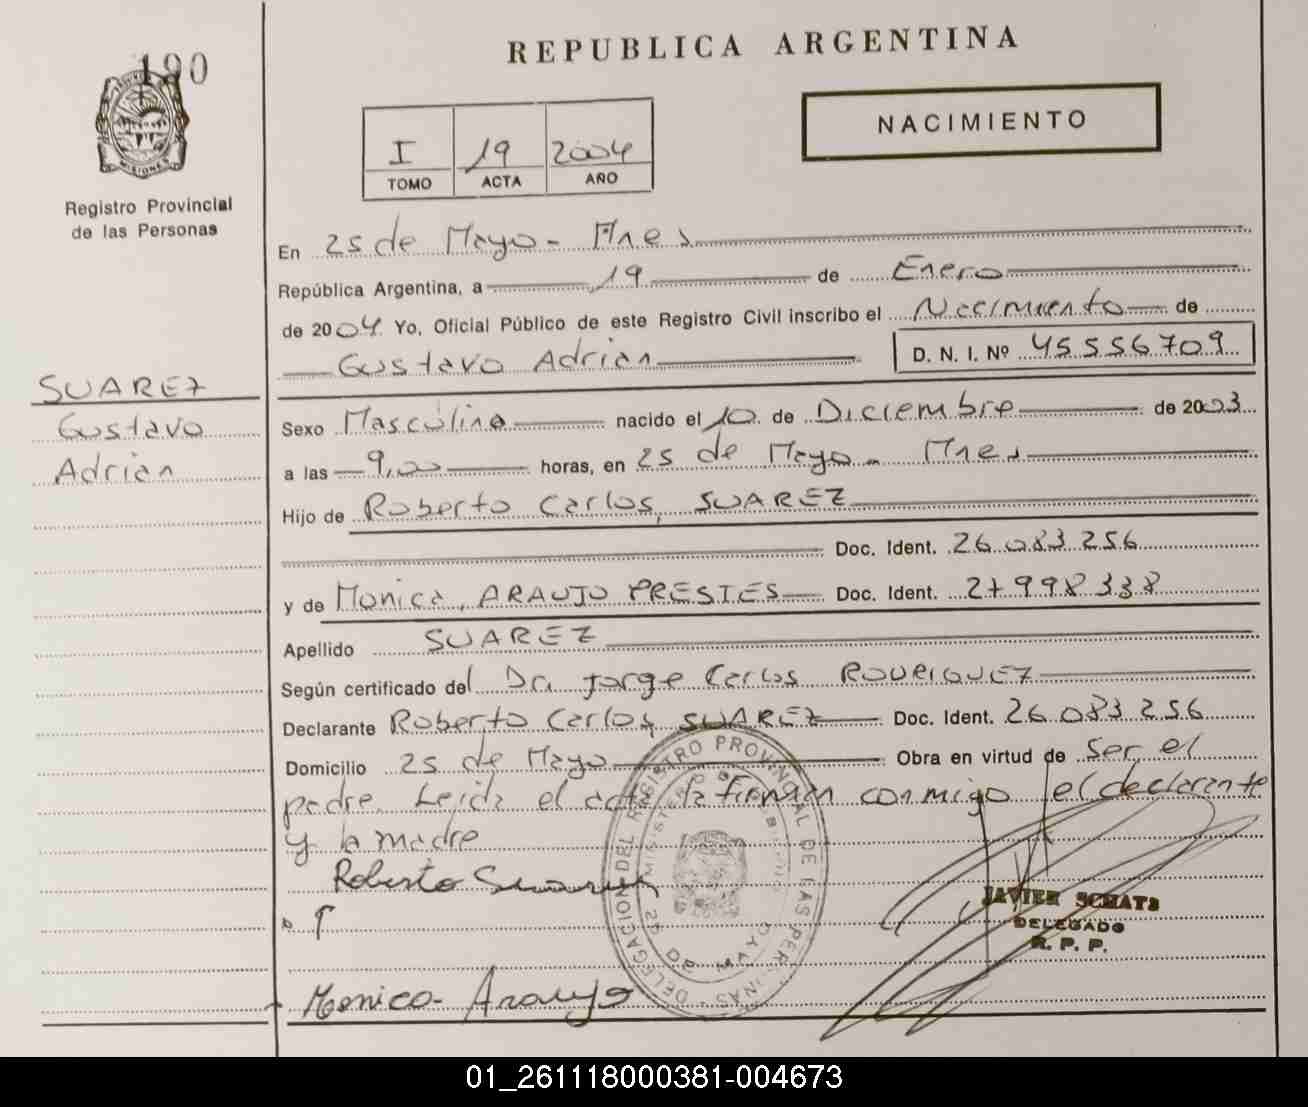 190
REPUBLICA ARGENTINA
NACIMIENTO
I 19 2004
TOMO ACTA AÑO
MISIONES
Registro Provincial
de las Personas
En 25 de Mayo - Mnes
República Argentina, a 19 de Enero
de 2004 Yo, Oficial Público de este Registro Civil inscribo el Nacimiento de
Gustavo Adrian D. N. I. Nº 45556709
SUAREZ
Gustavo
Adrian
Sexo Masculino nacido el 10 de Diciembre de 2003
a las 9,00 horas, en 25 de Mayo - Mnes
Hijo de Roberto Carlos, SUAREZ
Doc. Ident. 26.083.256
y de Monica, ARAUJO PRESTES Doc. Ident. 27998338
Apellido SUAREZ
Según certificado del Dr. Jorge Carlos RODRIGUEZ
Declarante Roberto Carlos, SUAREZ Doc. Ident. 26.083.256
Domicilio 25 de Mayo Obra en virtud de ser el
padre. Leida el acta, la firman conmigo el declarante
y la madre
Roberto Suarez
DELEGACION DEL REGISTRO PROVINCIAL DE LAS PERSONAS
25 DE MAYO
JAVIER SCHATS
DELEGADO
R. P. P.
Monica Araujo
01_261118000381-004673